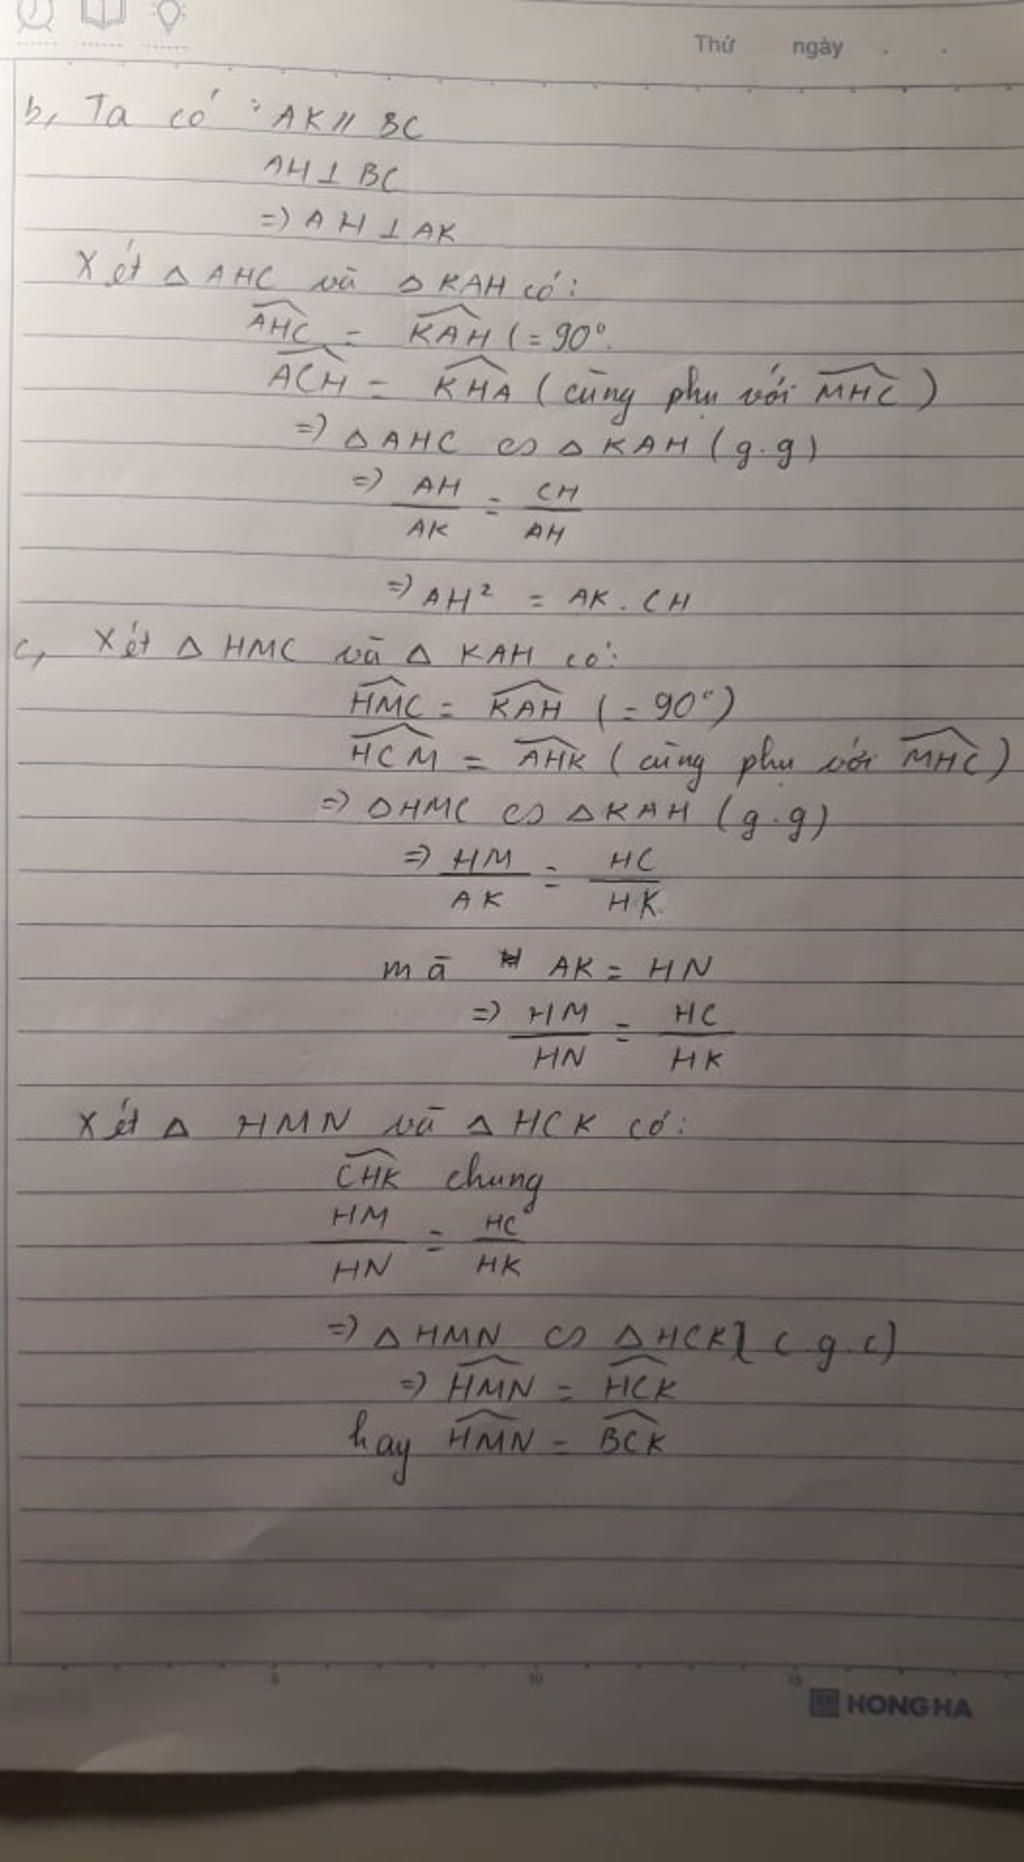 Thứ ngày . .
b, Ta có : AK // BC
AH ⊥ BC
=> AH ⊥ AK
Xét △ AHC và △ KAH có:
\widehat{AHC} = \widehat{KAH} (= 90°.
\widehat{ACH} = \widehat{KHA} (cùng phụ với \widehat{MHC})
=> △AHC ∽ △KAH (g.g)
=> \frac{AH}{AK} = \frac{CH}{AH}
=> AH² = AK . CH
c, Xét △ HMC và △ KAH có:
\widehat{HMC} = \widehat{KAH} (= 90°)
\widehat{HCM} = \widehat{AHK} (cùng phụ với \widehat{MHC})
=> △HMC ∽ △KAH (g.g)
=> \frac{HM}{AK} = \frac{HC}{HK}
mà AK = HN
=> \frac{HM}{HN} = \frac{HC}{HK}
Xét △ HMN và △ HCK có:
\widehat{CHK} chung
\frac{HM}{HN} = \frac{HC}{HK}
=> △HMN ∽ △HCK (c.g.c)
=> \widehat{HMN} = \widehat{HCK}
hay \widehat{HMN} = \widehat{BCK}
5 10 15
HONG HA